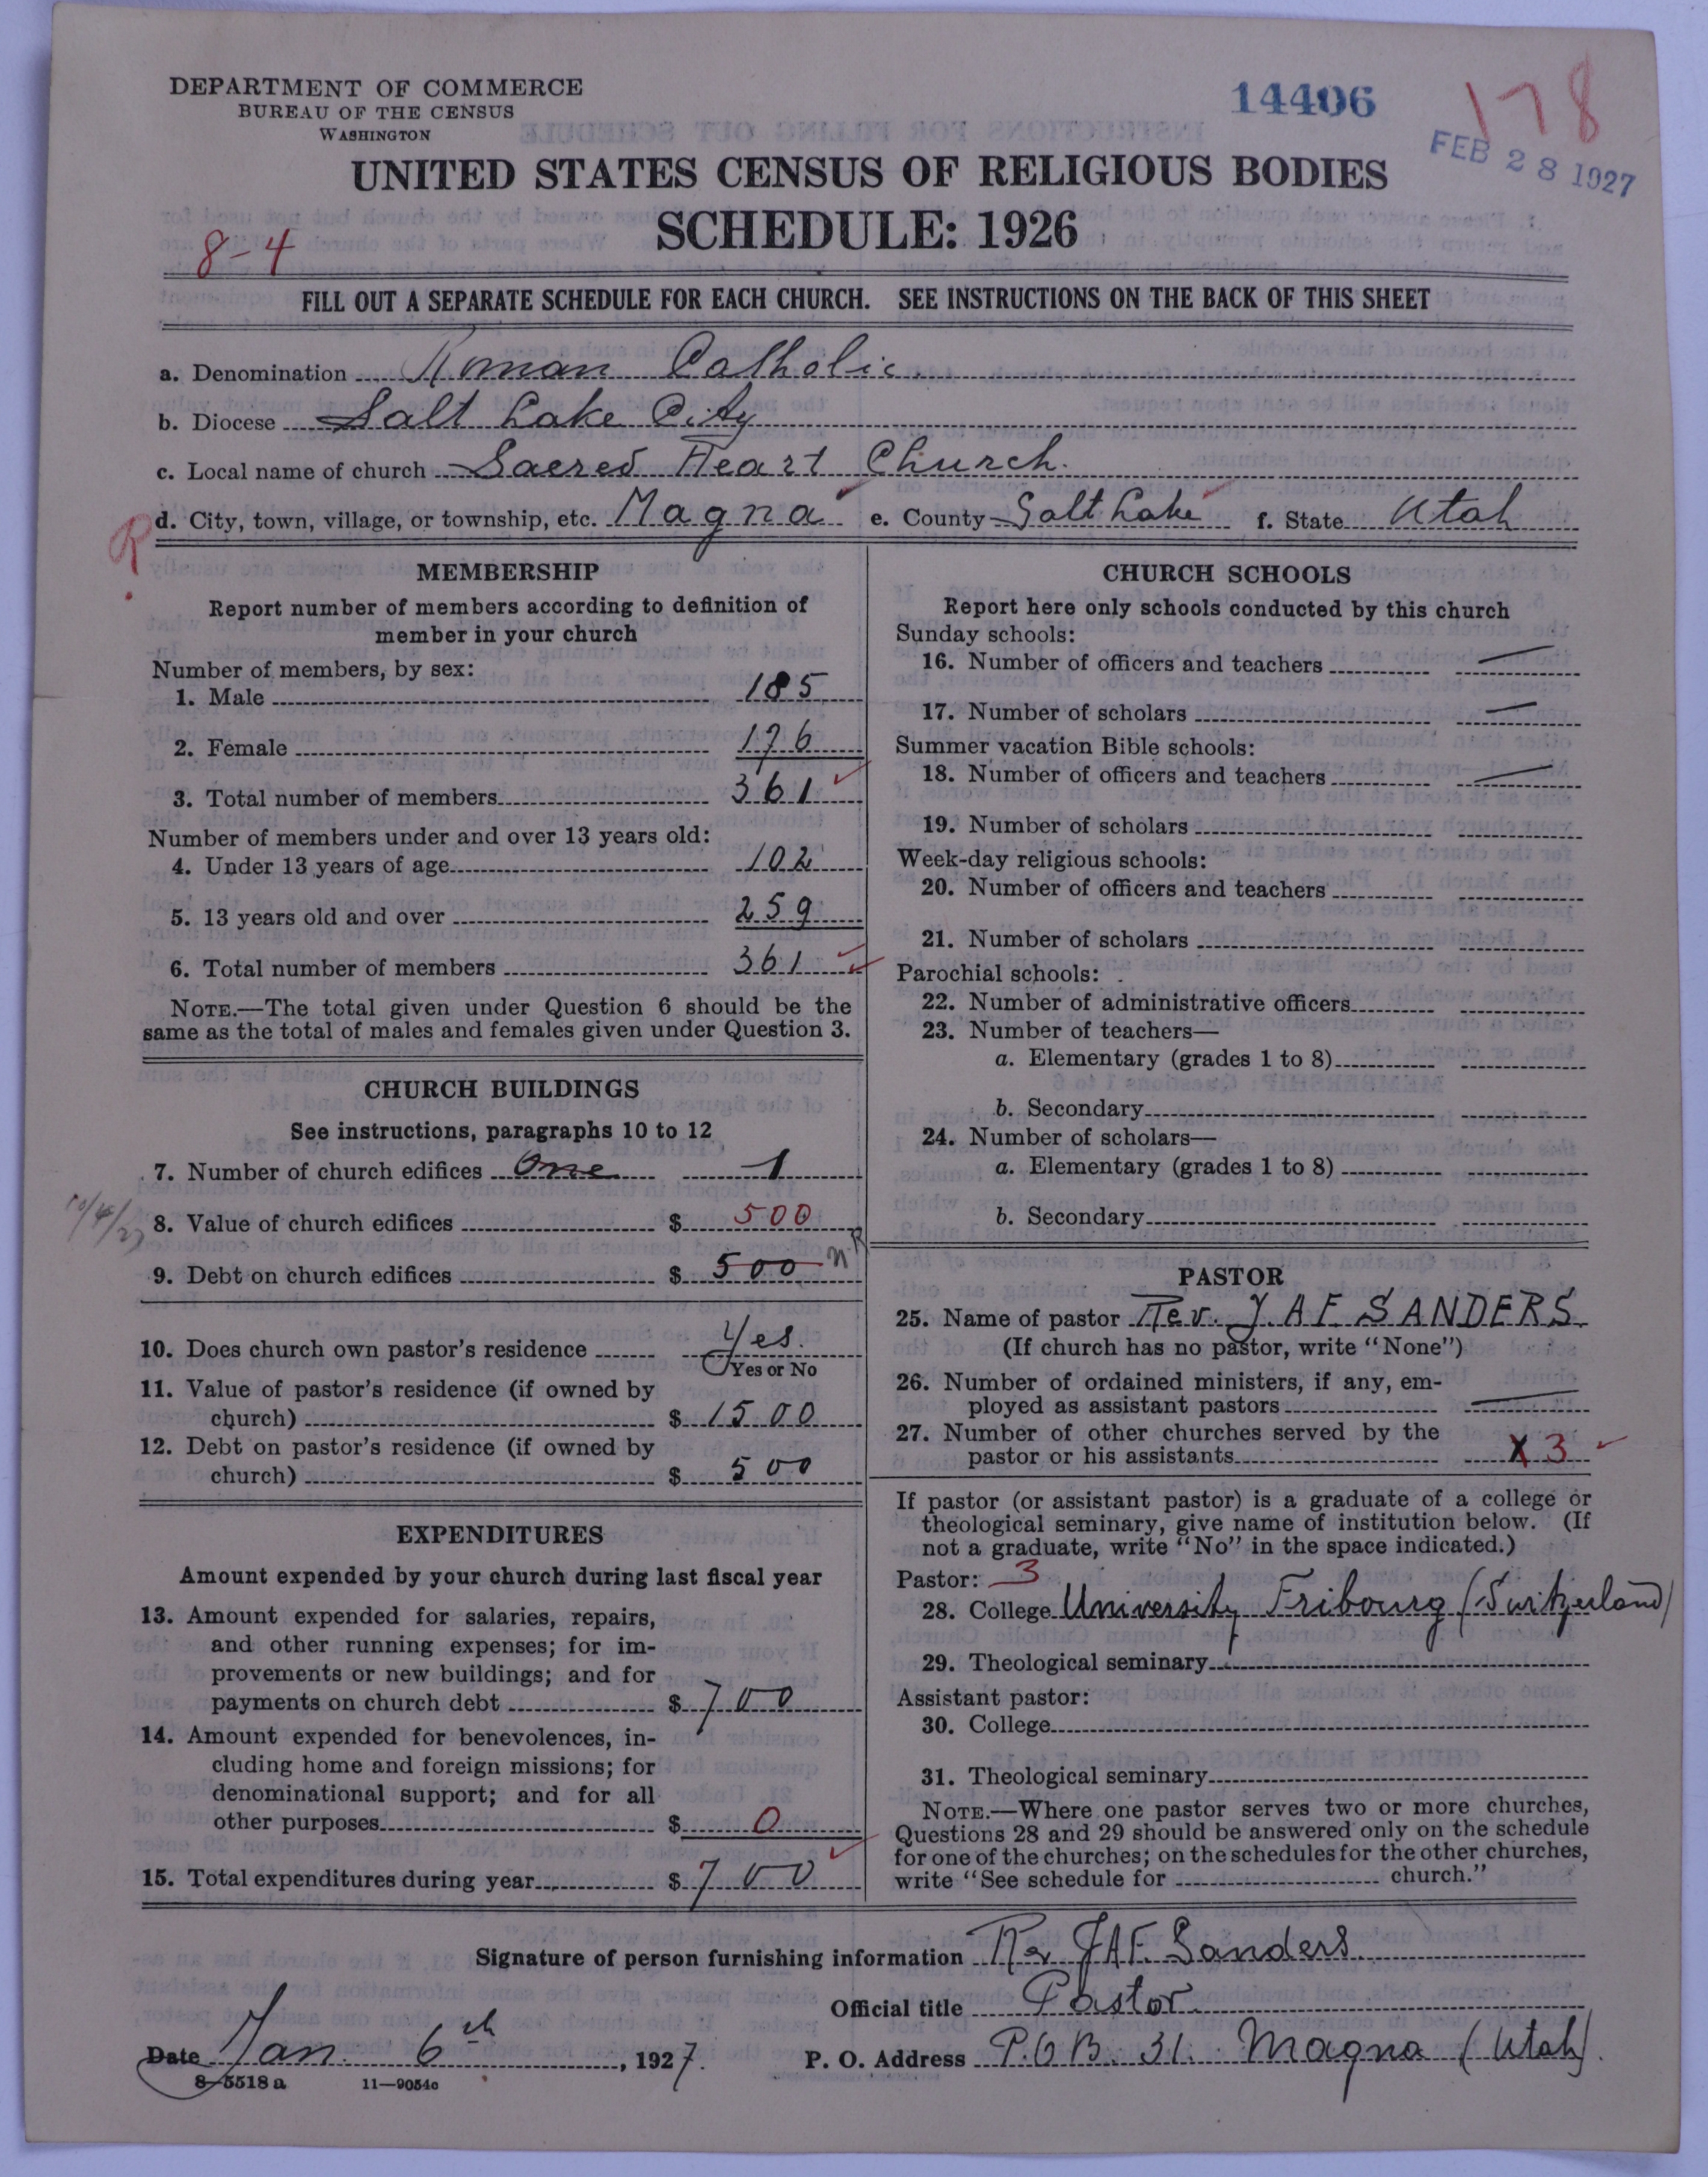 DEPARTMENT OF COMMERCE
BUREAU OF THE CENSUS
WASHINGTON
14406
178
FEB 28 1927
UNITED STATES CENSUS OF RELIGIOUS BODIES
SCHEDULE: 1926
8-4
FILL OUT A SEPARATE SCHEDULE FOR EACH CHURCH. SEE INSTRUCTIONS ON THE BACK OF THIS SHEET
a. Denomination Roman Catholic
b. Diocese Salt Lake City
c. Local name of church Sacred Heart Church.
R. d. City, town, village, or township, etc. Magna e. County Salt Lake f. State Utah
MEMBERSHIP
Report number of members according to definition of
member in your church
Number of members, by sex:
1. Male 185
2. Female 176
3. Total number of members 361
Number of members under and over 13 years old:
4. Under 13 years of age 102
5. 13 years old and over 259
6. Total number of members 361
NOTE.—The total given under Question 6 should be the
same as the total of males and females given under Question 3.
CHURCH BUILDINGS
See instructions, paragraphs 10 to 12
7. Number of church edifices One 1
10/4/27
8. Value of church edifices $ 500
9. Debt on church edifices $ 500 nR
10. Does church own pastor's residence Yes.
Yes or No
11. Value of pastor's residence (if owned by
church) $ 1500
12. Debt on pastor's residence (if owned by
church) $ 500
EXPENDITURES
Amount expended by your church during last fiscal year
13. Amount expended for salaries, repairs,
and other running expenses; for im-
provements or new buildings; and for
payments on church debt $ 700
14. Amount expended for benevolences, in-
cluding home and foreign missions; for
denominational support; and for all
other purposes $ 0
15. Total expenditures during year $ 700
CHURCH SCHOOLS
Report here only schools conducted by this church
Sunday schools:
16. Number of officers and teachers —
17. Number of scholars —
Summer vacation Bible schools:
18. Number of officers and teachers —
19. Number of scholars
Week-day religious schools:
20. Number of officers and teachers
21. Number of scholars
Parochial schools:
22. Number of administrative officers
23. Number of teachers—
a. Elementary (grades 1 to 8)
b. Secondary
24. Number of scholars—
a. Elementary (grades 1 to 8)
b. Secondary
PASTOR
25. Name of pastor Rev. J. A F. SANDERS.
(If church has no pastor, write "None")
26. Number of ordained ministers, if any, em-
ployed as assistant pastors —
27. Number of other churches served by the
pastor or his assistants X 3
If pastor (or assistant pastor) is a graduate of a college or
theological seminary, give name of institution below. (If
not a graduate, write "No" in the space indicated.)
Pastor: 3
28. College University Fribourg (Switzerland)
29. Theological seminary
Assistant pastor:
30. College
31. Theological seminary
NOTE.—Where one pastor serves two or more churches,
Questions 28 and 29 should be answered only on the schedule
for one of the churches; on the schedules for the other churches,
write "See schedule for church."
Signature of person furnishing information Rev JAF. Sanders.
Official title Pastor.
Date Jan. 6th, 1927. P. O. Address P.O B. 31. Magna (Utah).
8-5518 a 11—9054c